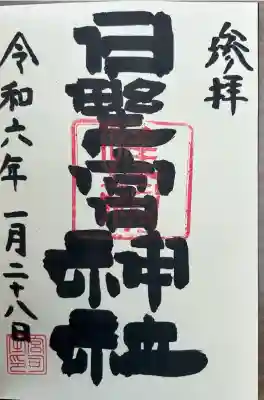 参拝
日野宮神社
令和六年一月二十八日